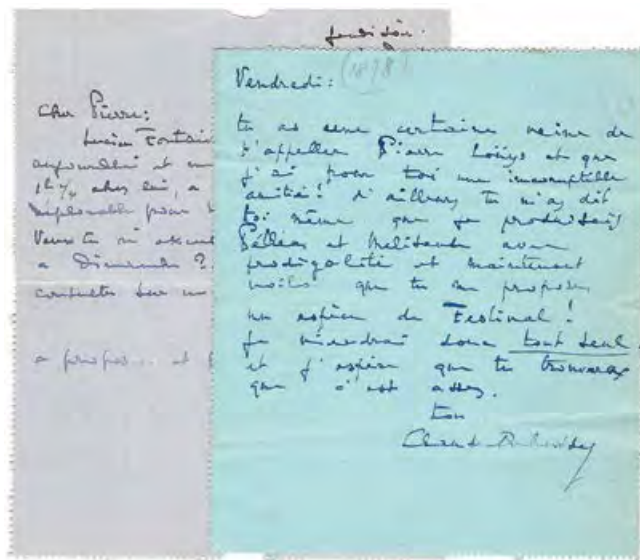 Jeudi soir.
Cher Pierre:
Lucien Fontai
aujourd'hui et
chez lui, a
déplorable pour
Veux tu m'excus
a Dimanche ?
consulter sur un
a propos... et
Vendredi: (1898)
tu as une certaine veine de
t'appeller Pierre Louÿs et que
j'ai pour toi une incorruptible
amitié! d'ailleurs tu m'as dit
toi même que je produisais
Pelléas et Mélisande avec
prodigalité et maintenant
voilà que tu me proposes
un espèce de Festival !
Je viendrai donc tout seul
et j'espère que tu trouveras
que c'est assez.
ton
Claude Debussy